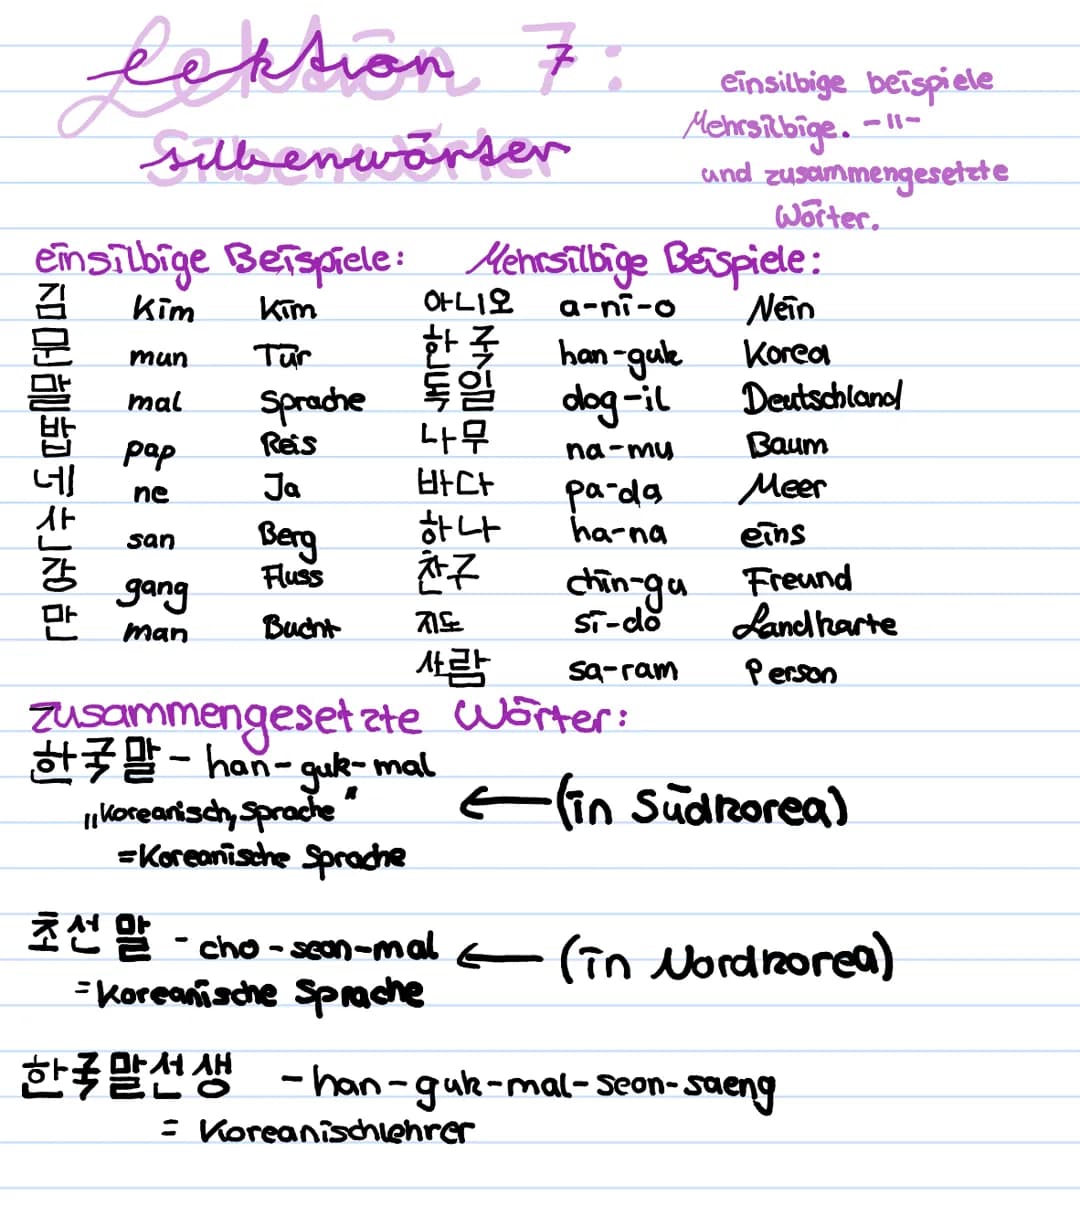 Lektion 7:
Silbenwörter
einsilbige beispiele
Mehrsilbige. -11-
und zusammengesetzte
Wörter.
einsilbige Beispiele: Mehrsilbige Beispiele:
김 Kim Kim 아니오 a-ni-o Nein
문 mun Tür 한국 han-guk Korea
말 mal Sprache 독일 dog-il Deutschland
밥 pap Reis 나무 na-mu Baum
네 ne Ja 바다 pa-da Meer
산 san Berg 하나 ha-na eins
강 gang Fluss 친구 chin-gu Freund
만 man Bucht 지도 si-do Landkarte
사람 sa-ram Person
zusammengesetzte Wörter:
한국말 - han-guk-mal
„Koreanisch, Sprache" ← (in Südkorea)
=Koreanische Sprache
조선말 - cho-seon-mal ← (in Nordkorea)
=Koreanische Sprache
한국말선생 -han-guk-mal-seon-saeng
= Koreanischlehrer